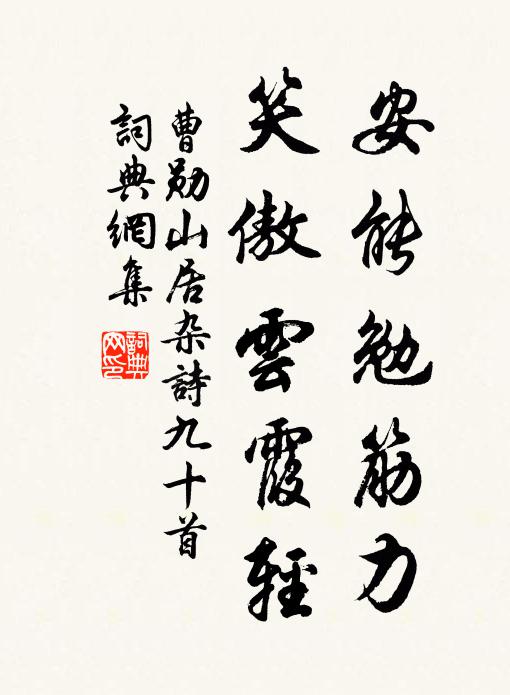 安能勉筋力
笑傲雲霞輕
曹勛山居杂詩九十首
詞典網集
詞典网印